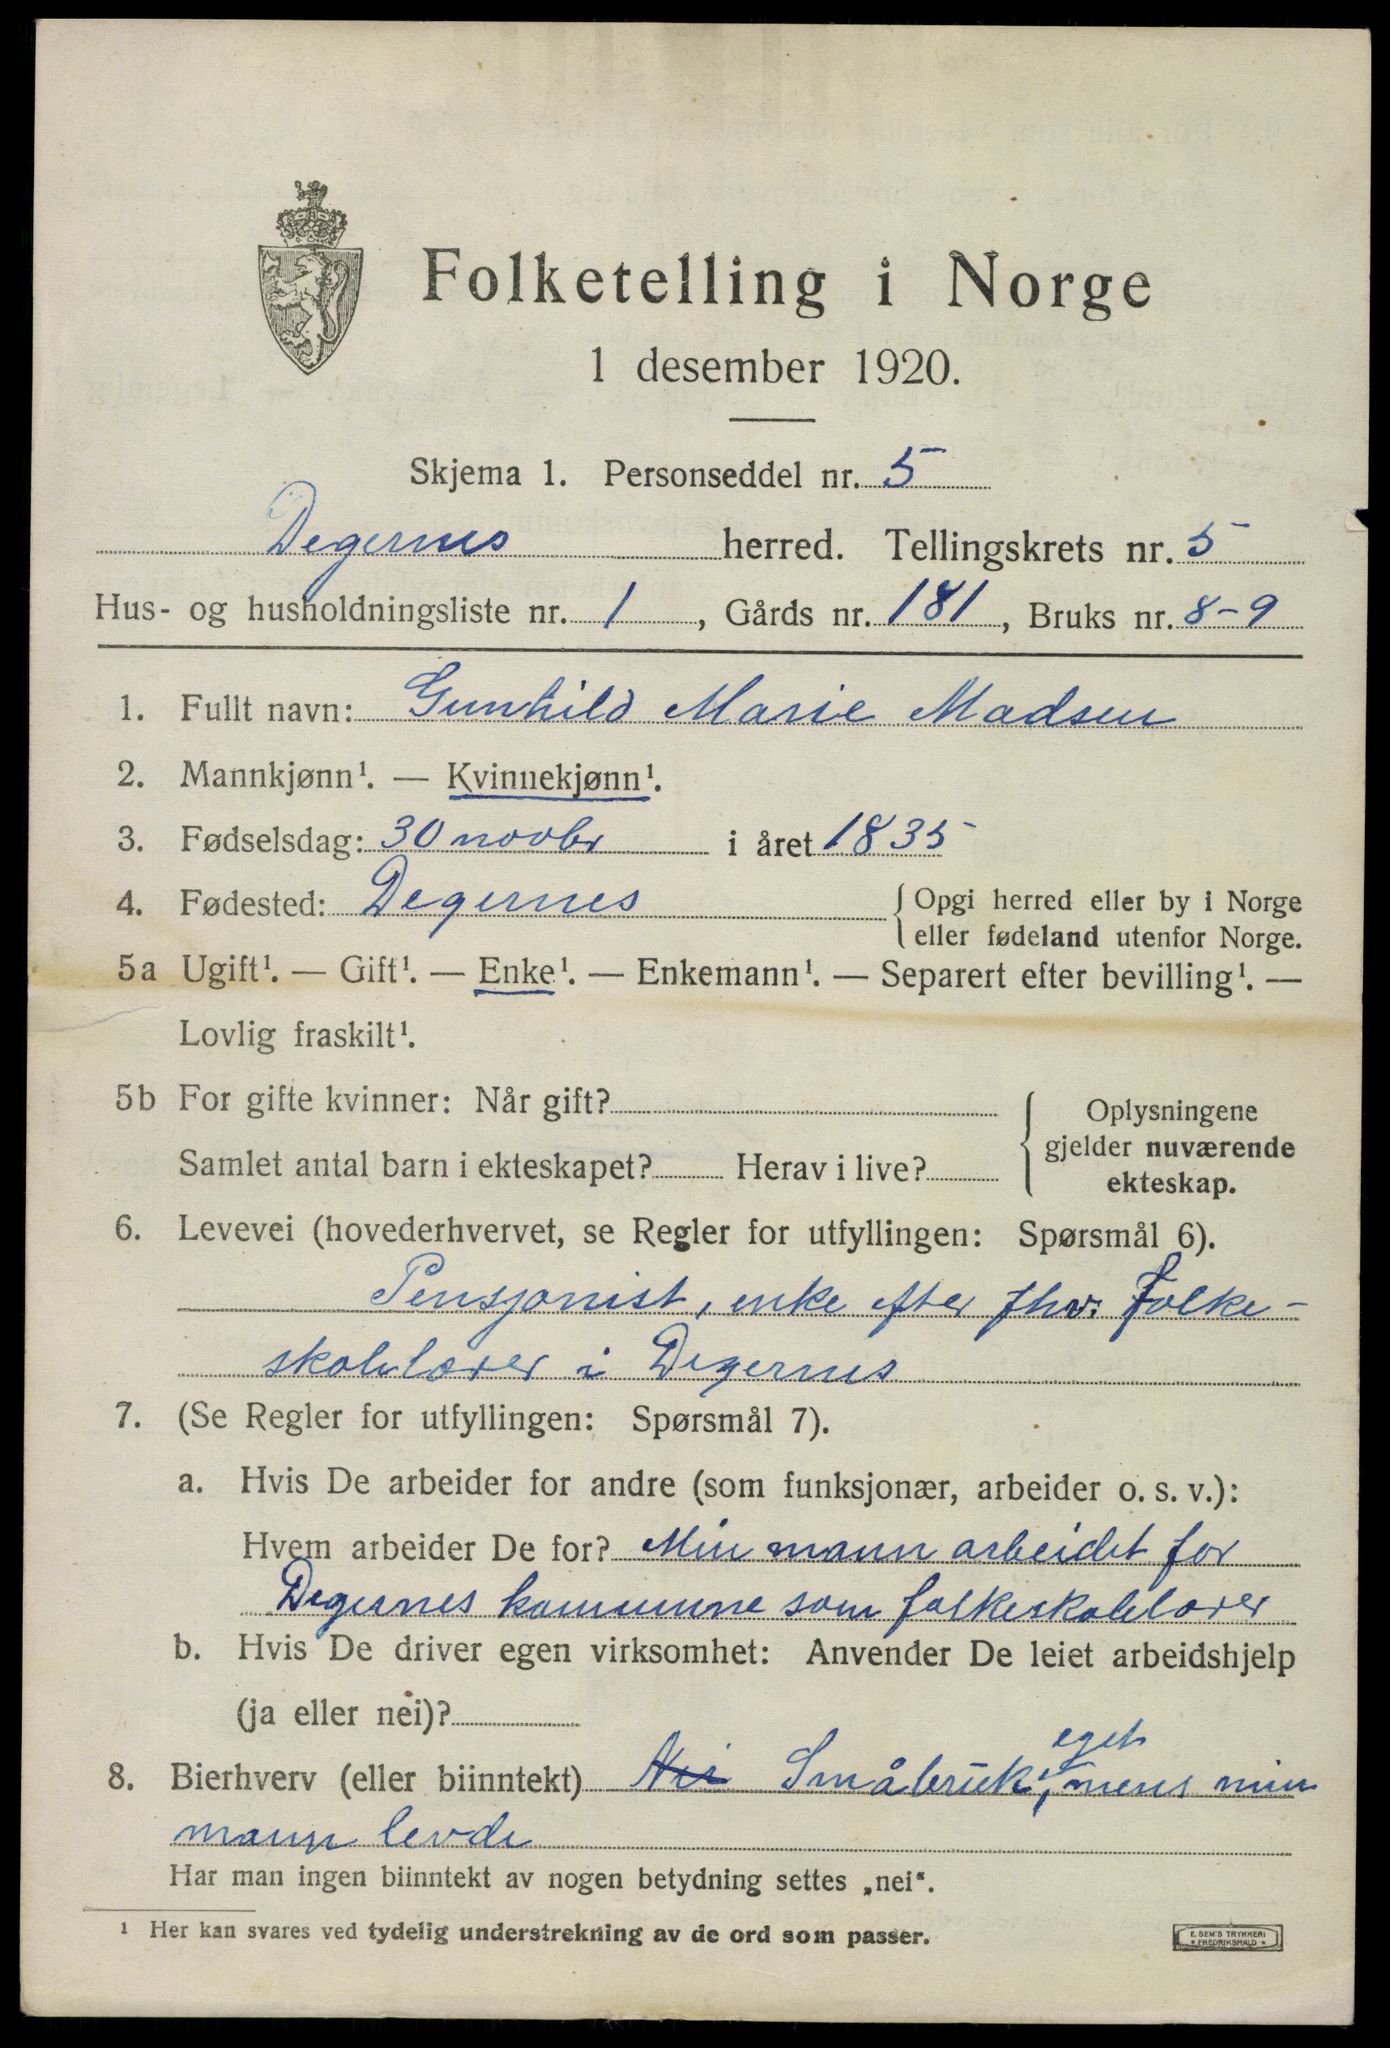 Folketelling i Norge
1 desember 1920.
Skjema 1. Personseddel nr. 5
Degernes herred. Tellingskrets nr. 5
Hus- og husholdningsliste nr. 1, Gårds nr. 181, Bruks nr. 8-9
1. Fullt navn: Gunhild Marie Madsen
2. Mannkjønn¹. — Kvinnekjønn¹.
3. Fødselsdag: 30 novbr i året 1835
4. Fødested: Degernes { Opgi herred eller by i Norge
eller fødeland utenfor Norge.
5a Ugift¹. — Gift¹. — Enke¹. — Enkemann¹. — Separert efter bevilling¹. —
Lovlig fraskilt¹.
5b For gifte kvinner: Når gift?
Samlet antal barn i ekteskapet? Herav i live?
Oplysningene
gjelder nuværende
ekteskap.
6. Levevei (hovederhvervet, se Regler for utfyllingen: Spørsmål 6).
Pensjonist, enke efter fhv. folke-
skolelærer i Degernes
7. (Se Regler for utfyllingen: Spørsmål 7).
a. Hvis De arbeider for andre (som funksjonær, arbeider o. s. v.):
Hvem arbeider De for? Min mann arbeidet for
Degernes kommune som folkeskolelærer
b. Hvis De driver egen virksomhet: Anvender De leiet arbeidshjelp
(ja eller nei)?
eget
8. Bierhverv (eller biinntekt) Nei Småbruk, mens min
mann levde
Har man ingen biinntekt av nogen betydning settes „nei“.
¹ Her kan svares ved tydelig understrekning av de ord som passer.
E. SEM'S TRYKKERI
* FREDRIKSHALD *